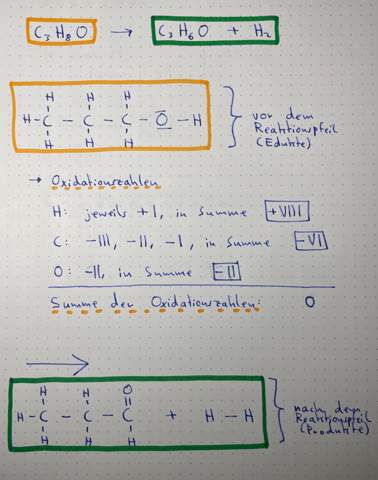 C₃H₈O → C₃H₆O + H₂
H H H
H-C - C - C - O - H
H H H
vor dem
Reaktionspfeil
(Edukte)
→ Oxidationszahlen
H: jeweils +I, in Summe +VIII
C: -III, -II, -I, in Summe -VI
O: -II, in Summe -II
Summe der Oxidationszahlen: 0
H H O
H-C - C - C + H - H
H H H
nach dem
Reaktionspfeil
(Produkte)